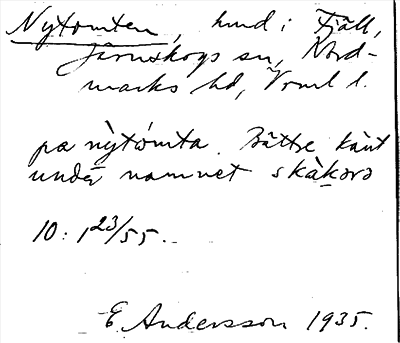 Nytomten, hmd i Fjäll,
Järnskogs sn, Nord-
marks hd, Vrml l.
pa nỳtómta. Bättre känt
under namnet skàkərə
10:1 23/55.
E. Andersson 1935.